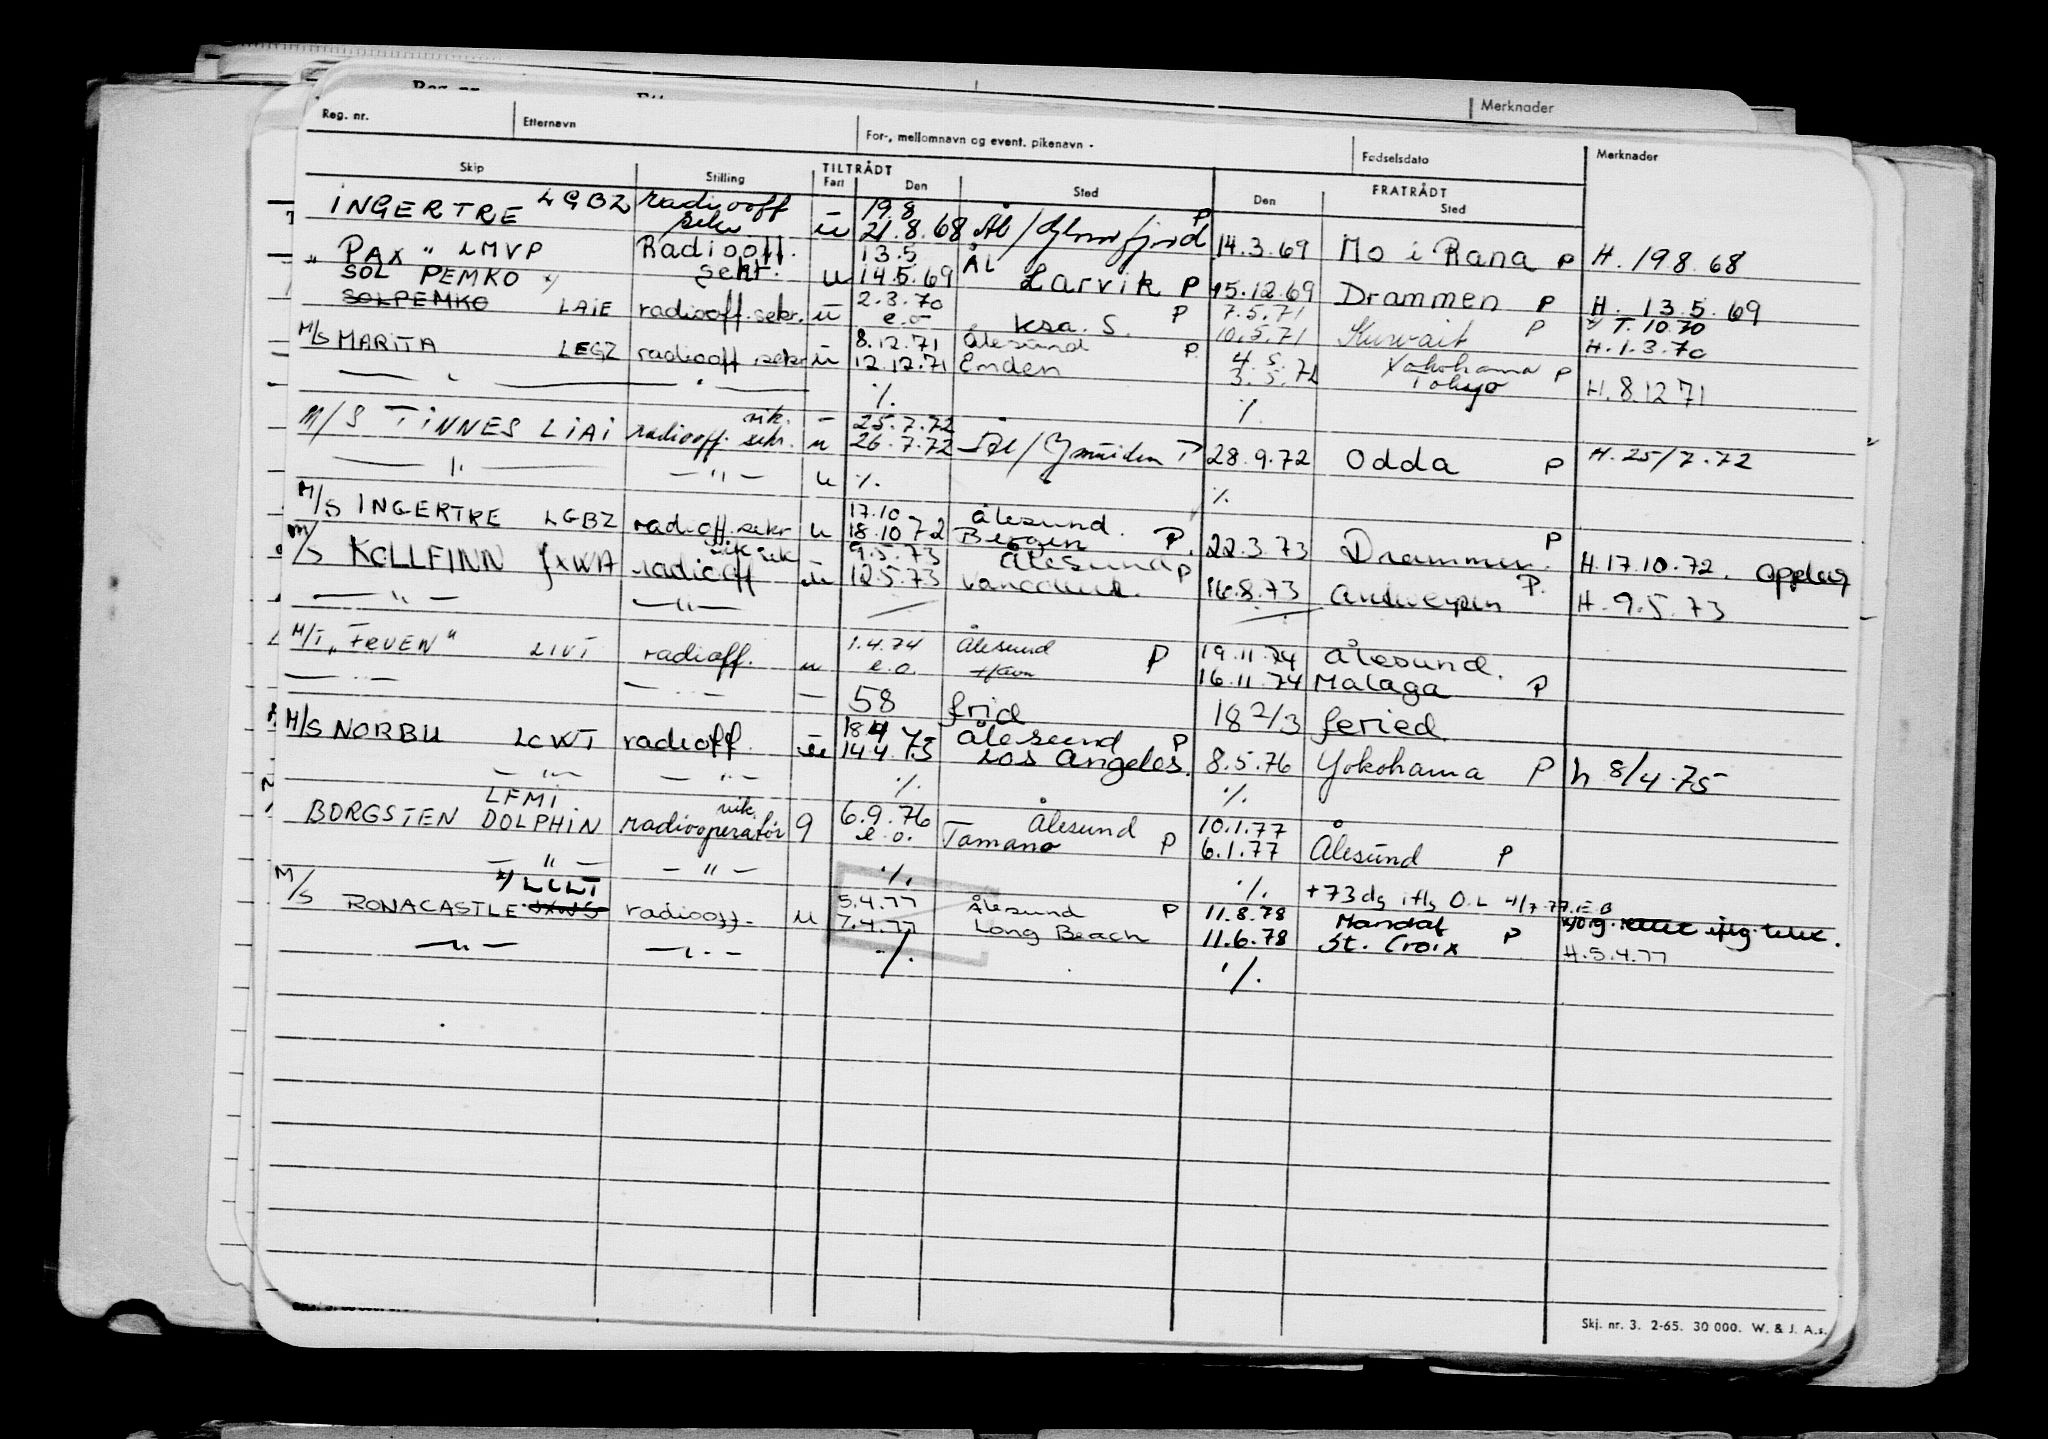 Merknader
Reg. nr. Etternavn For-, mellomnavn og event. pikenavn Fødselsdato Merknader
Skip Stilling TILTRÅDT Fart Den Sted FRATRÅDT Den Sted
INGERTRE LGBZ radiooff sekr u 19.8 21.8.68 Ål/Glomfjord P 14.3.69 Mo i Rana P H. 19 8. 68
" PAX " LMVP Radiooff. sekr. u 13.5 14.5.69 ÅL Larvik P 15.12.69 Drammen P H. 13.5.69
SOL PEMKO x/ x/ T. 10.70
SOLPEMKO LAIE radiooff. sekr. u 2.3.70 e.o Ksa. S. P 7.5.71 10.5.71 Kuwait P H. 1.3.70
M/S MARITA LEGZ radiooff sekr u 8.12.71 12.12.71 Ålesund Emden P 4.5. 3.5.72 Yokohama Tokyo P H. 8.12 71
— " — " — ./. ./.
M/S TINNES LIAI radiooff. vik. sekr. u 25.7.72 26.7.72 Ål/Ymuiden P 28.9.72 Odda P H. 25/7.72
— " — — " — u ./. ./.
M/S INGERTRE LGBZ radioff. sekr u 17.10 18.10 72 Ålesund Bergen P. 22.3.73 Drammen P H. 17.10.72. Opplag
M/S KOLLFINN JXWA radiooff vik sekr u 9.5.73 12.5.73 Ålesund Vancouver P 16.8.73 Antwerpen P. H. 9.5.73
— " — — " —
M/T "FRUEN" LIVT radioff. u 1.4.74 e.o. Ålesund Havn P 19.11.74 16.11.74 Ålesund. Malaga P
— " — — " — — 58 frid 18 2/3 feried
M/S NORBU LCWT radioff. u 18 4 75 14.4.75 Ålesund Los Angeles. P 8.5.76 Yokohama P h 8/4.75
— " — — " — ./. ./.
LFMI
BORGSTEN DOLPHIN radiooperatør vik. 9 6.9.76 e.o. Ålesund Tamano P 10.1.77 6.1.77 Ålesund P
— " — — " — ./. ./. +73 dg iflg O.L 4/7.77. E B
x/ LCLT
M/S RONACASTLE JXWS radiooff. u 5.4.77 7.4.77 Ålesund Long Beach P 11.8.78 11.6.78 Mandal St. Croix P H. 5.4.77
— " — — " — ./. ./.
Skj. nr. 3. 2-65. 30 000. W. & J. A.s.